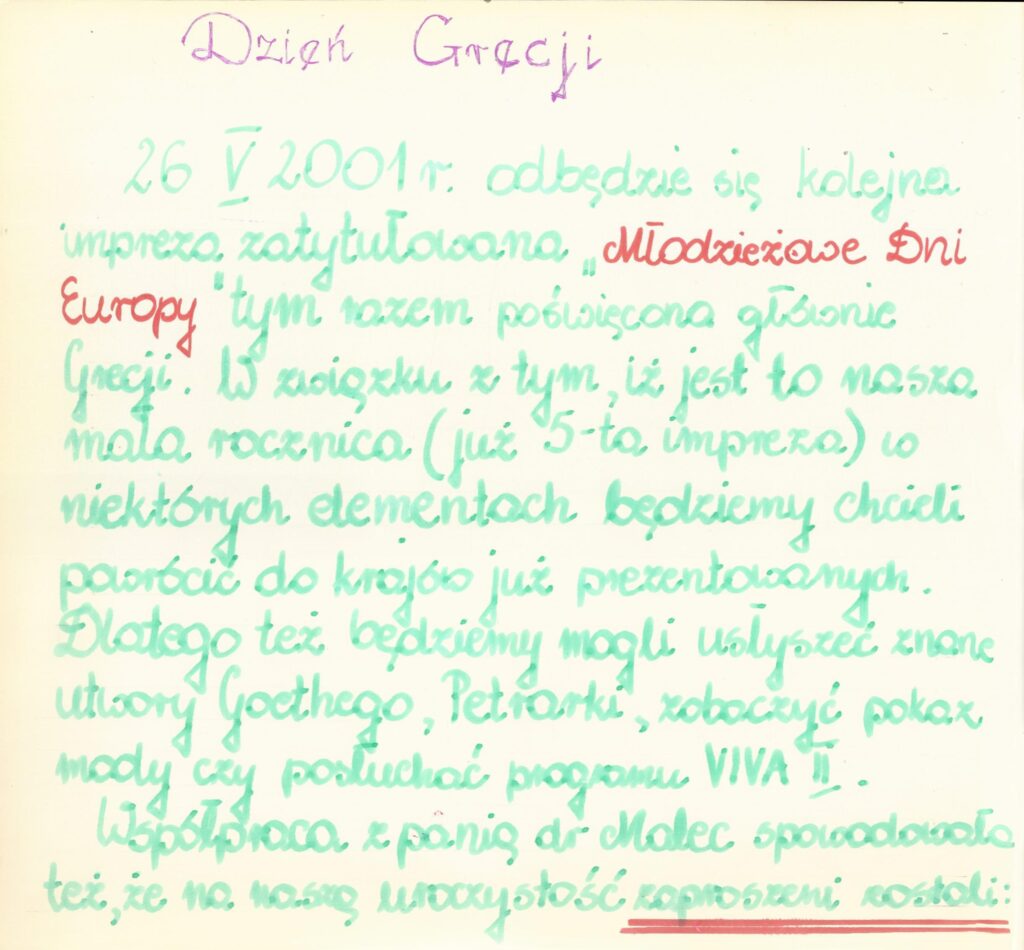 Dzień Grecji
26 V 2001 r. odbędzie się kolejna
impreza zatytułowana „Młodzieżowe Dni
Europy" tym razem poświęcona głównie
Grecji. W związku z tym, iż jest to nasza
mała rocznica (już 5-ta impreza) w
niektórych elementach będziemy chcieli
powrócić do krajów już prezentowanych.
Dlatego też będziemy mogli usłyszeć znane
utwory Goethego, Petrarki, zobaczyć pokaz
mody czy posłuchać programu VIVA II.
Współpraca z panią dr Malec spowodowała
też, że na naszą uroczystość zaproszeni zostali: